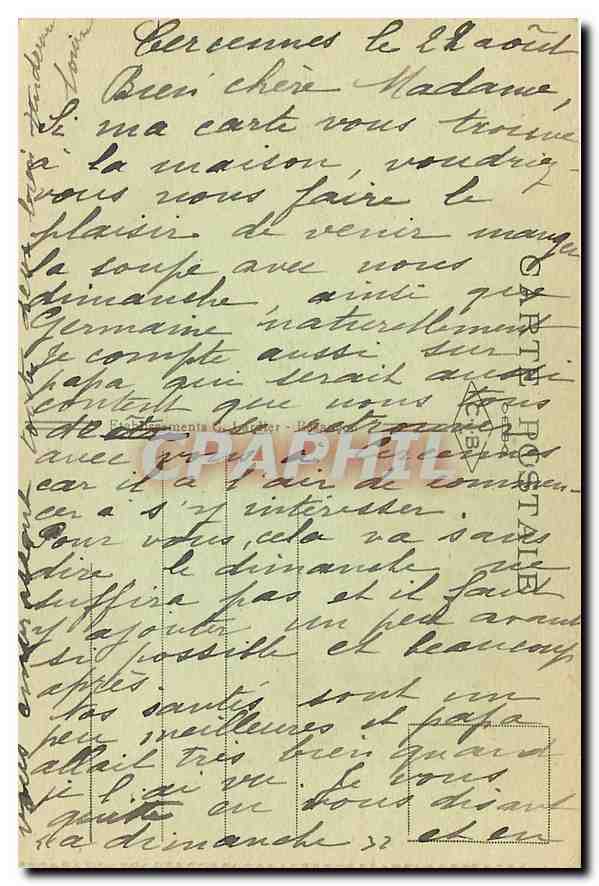 Cercennes le 22 août
Bien chère Madame,
Si ma carte vous trouve
à la maison, voudriez-
vous nous faire le
plaisir de venir manger
la soupe avec nous
dimanche, ainsi que
Germaine naturellement
Je compte aussi sur
papa, qui serait aussi
content que nous tous
de se trouver
avec vous à Cercennes
car il a l'air de commen-
cer à s'y intéresser.
Pour vous, cela va sans
dire le dimanche ne
suffira pas et il faut
y ajouter un peu avant
si possible et beaucoup
après.
Nos santés sont un
peu meilleures et papa
allait très bien quand
je l'ai vu. Je vous
quitte en vous disant
"à dimanche" et en
vous embrassant
CARTE POSTALE
C.B
Etablissements C. Lardier -
CPAPHIL